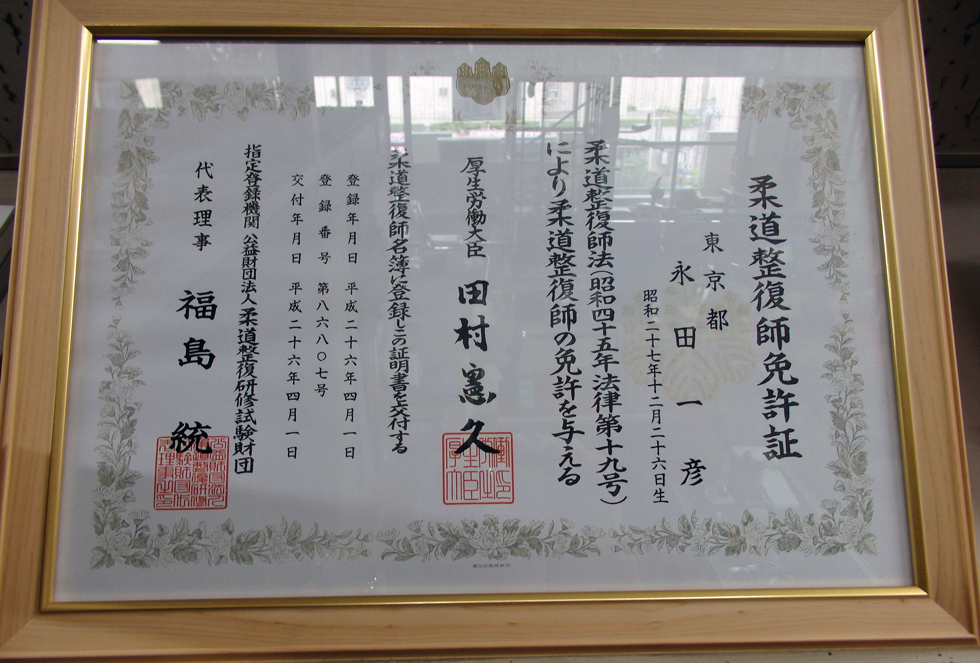 柔道整復師免許証
東京都
永田一彦
昭和二十七年十二月二十六日生
柔道整復師法(昭和四十五年法律第十九号)
により柔道整復師の免許を与える
厚生労働大臣 田村憲久
柔道整復師名簿に登録しこの証明書を交付する
登録年月日 平成二十六年四月一日
登録番号 第八六八〇七号
交付年月日 平成二十六年四月一日
指定登録機関 公益財団法人柔道整復研修試験財団
代表理事 福島統